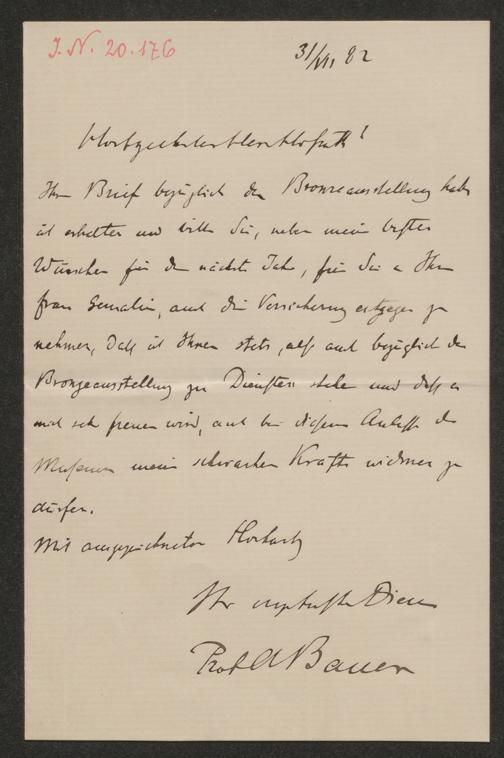 J. N. 20.176
31/XII 82
Hochgeehrtester Herr Hofrath!
Ihren Brief bezüglich der Bronzeausstellung habe
ich erhalten und bitte Sie, neben meinen besten
Wünschen für das nächste Jahr, für Sie u Ihre
Frau Gemalin, auch die Versicherung entgegen zu
nehmen, daß ich Ihnen stets, also auch bezüglich der
Bronzeausstellung zu Diensten stehe und daß es
mich sehr freuen wird, auch bei diesem Anlasse dem
Museum meine schwachen Kräfte widmen zu
dürfen.
Mit ausgezeichneter Hochachtg
Ihr ergebenster Diener
Prof ABauer